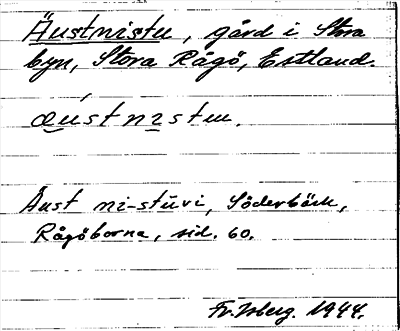 Äustnistu, gård i Stora
byn, Stora Rågö, Estland.
æústnɪstu.
Äust ni-stūvi, Söderbäck,
Rågöborna, sid. 60.
Fr. Isberg. 1944.